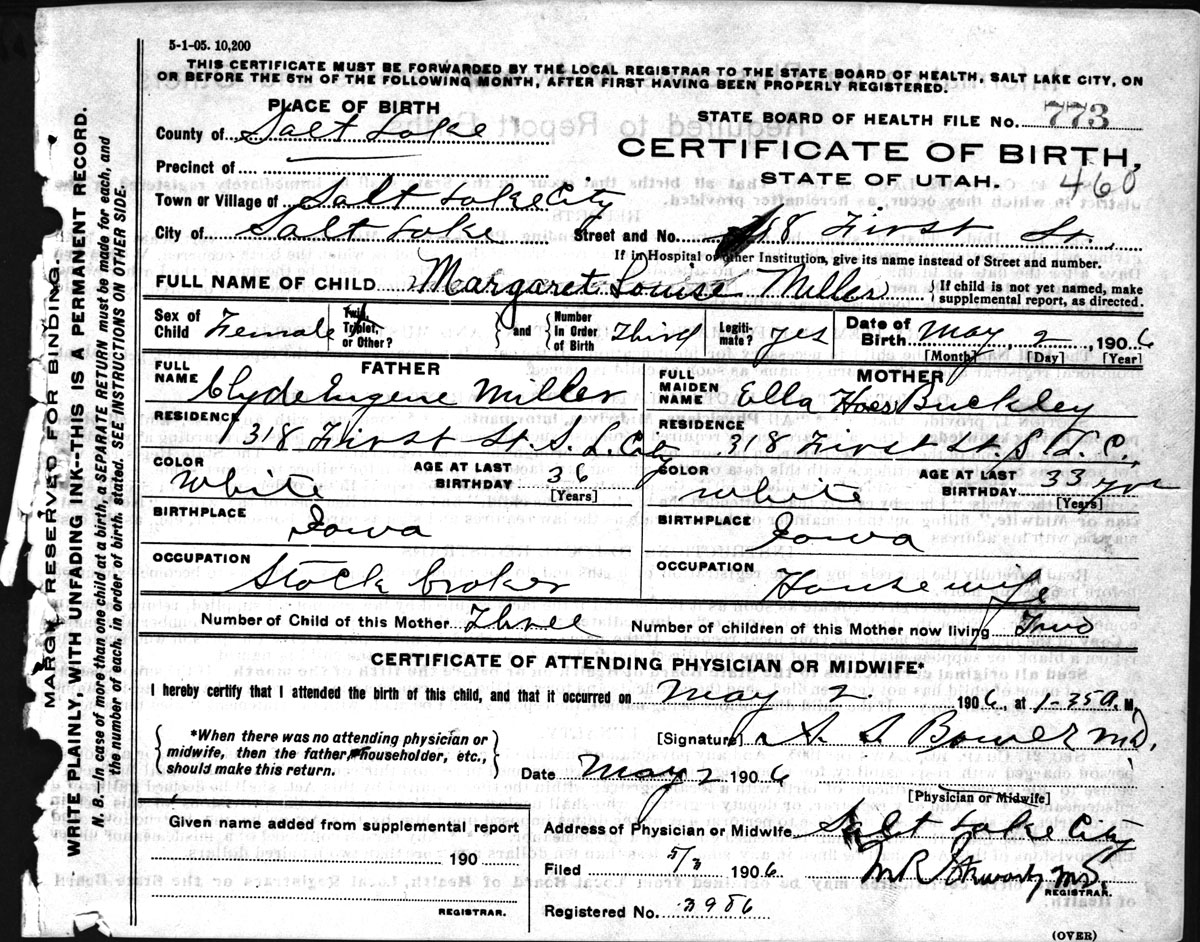 5-1-05. 10,200
THIS CERTIFICATE MUST BE FORWARDED BY THE LOCAL REGISTRAR TO THE STATE BOARD OF HEALTH, SALT LAKE CITY, ON
OR BEFORE THE 5TH OF THE FOLLOWING MONTH, AFTER FIRST HAVING BEEN PROPERLY REGISTERED.
PLACE OF BIRTH
County of Salt Lake
STATE BOARD OF HEALTH FILE NO. 773
Precinct of
CERTIFICATE OF BIRTH,
STATE OF UTAH. 460
Town or Village of Salt Lake City
City of Salt Lake Street and No. 318 First St.
If in Hospital or other Institution, give its name instead of Street and number.
FULL NAME OF CHILD Margaret Louise Miller } If child is not yet named, make supplemental report, as directed.
Sex of Child Female Twin, Triplet, or Other? } and { Number In Order of Birth Third Legiti-mate? yes Date of Birth May 2, 1906
[Month] [Day] [Year]
FATHER MOTHER
FULL NAME Clyde Eugene Miller FULL MAIDEN NAME Ella Buckley
RESIDENCE 1318 First St S. L. City RESIDENCE 318 First St. S. L. C.
COLOR White AGE AT LAST BIRTHDAY 36 [Years] COLOR White AGE AT LAST BIRTHDAY 33 yrs [Years]
BIRTHPLACE Iowa BIRTHPLACE Iowa
OCCUPATION Stock broker OCCUPATION House wife
Number of Child of this Mother Three Number of children of this Mother now living Two
CERTIFICATE OF ATTENDING PHYSICIAN OR MIDWIFE*
I hereby certify that I attended the birth of this child, and that it occurred on May 2 1906, at 1-35 A. M.
{ *When there was no attending physician or midwife, then the father, householder, etc., should make this return. }
[Signature] S. S. Bower MD.
Date May 2 1906
[Physician or Midwife]
Given name added from supplemental report
190
REGISTRAR.
Address of Physician or Midwife Salt Lake City
Filed 5/3 1906 M.R. Stewart MD.
REGISTRAR.
Registered No. 3986
(OVER)
MARGIN RESERVED FOR BINDING
WRITE PLAINLY, WITH UNFADING INK--THIS IS A PERMANENT RECORD.
N. B. In case of more than one child at a birth, a SEPARATE RETURN must be made for each, and
the number of each, in order of birth, stated. SEE INSTRUCTIONS ON OTHER SIDE.